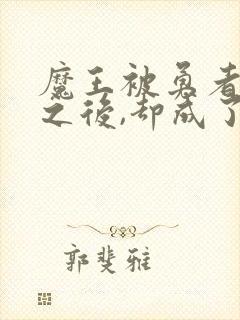 魔王被勇者
之後,却成了
郭斐雅